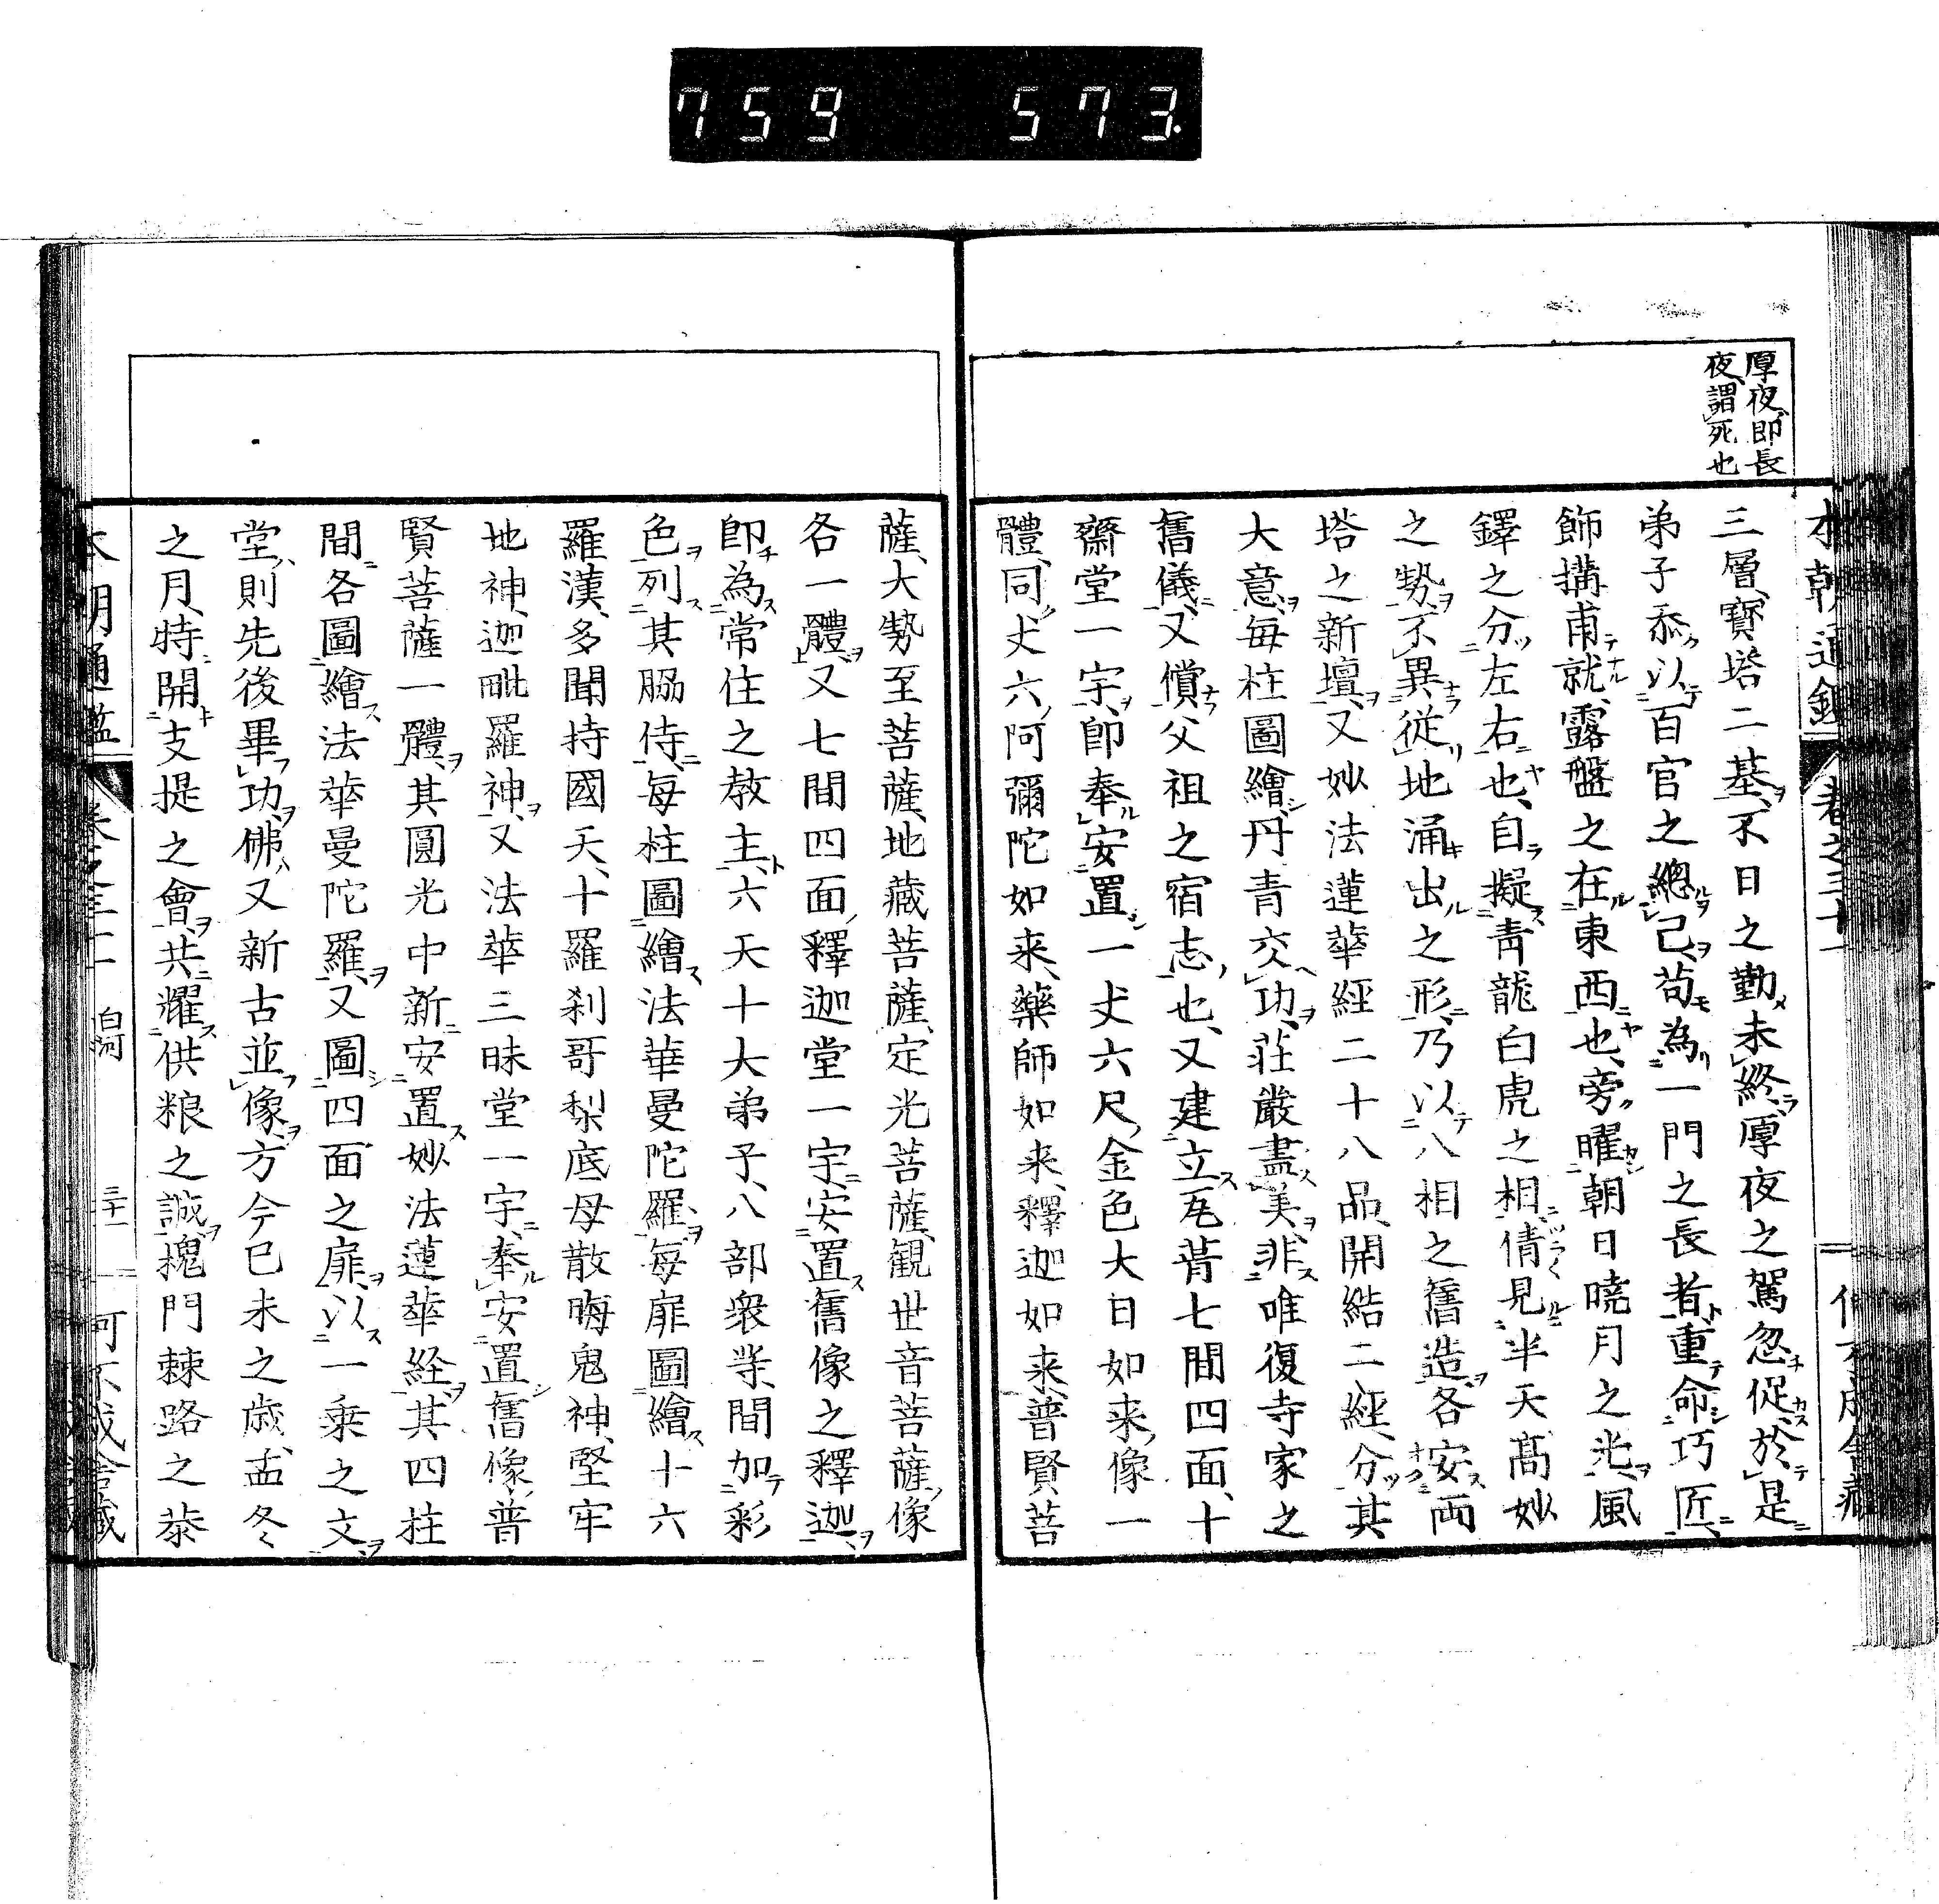 759 573.
厚夜、即長
夜、謂死也
三層寶塔二基、不日之勤未終、厚夜之駕忽促、於是
弟子忝以百官之總己、苟為一門之長者、重命巧匠、
飾搆甫就、露盤之在東西也、旁曜朝日曉月之光、風
鐸之分左右也、自擬青龍白虎之相、倩見半天高妙
之勢、不異從地涌出之形、乃以八相之舊造、各安兩
塔之新壇、又妙法蓮華經二十八品、開結二經、分其
大意、每柱圖繪、丹青交功、莊嚴盡美、非唯復寺家之
舊儀、又償父祖之宿志也、又建立瓦葺七間四面、十
齋堂一宇、卽奉安置一丈六尺金色大日如来像一
體、同丈六阿彌陀如来、藥師如来、釋迦如来、普賢菩
薩、大勢至菩薩、地藏菩薩、定光菩薩、觀世音菩薩像
各一體、又七間四面釋迦堂一宇、安置舊像之釋迦、
卽為常住之教主、六天十大弟子、八部衆業、間加彩
色、列其脇侍、每柱圖繪法華曼陀羅、每扉圖繪十六
羅漢、多聞持國天、十羅刹哥梨底母散晦鬼神、堅牢
地神、迦毗羅神、又法華三昧堂一宇、奉安置舊像普
賢菩薩一體、其圓光中新安置妙法蓮華経、其四柱
間各圖繪法華曼陀羅、又圖四面之扉、以一乗之文、
堂則先後畢功、佛又新古並像、方今己未之歳、孟冬
之月、特開支提之會、共耀供粮之誠、槐門棘路之㳟
本朝通鑑 卷之三十一 白河 三十一